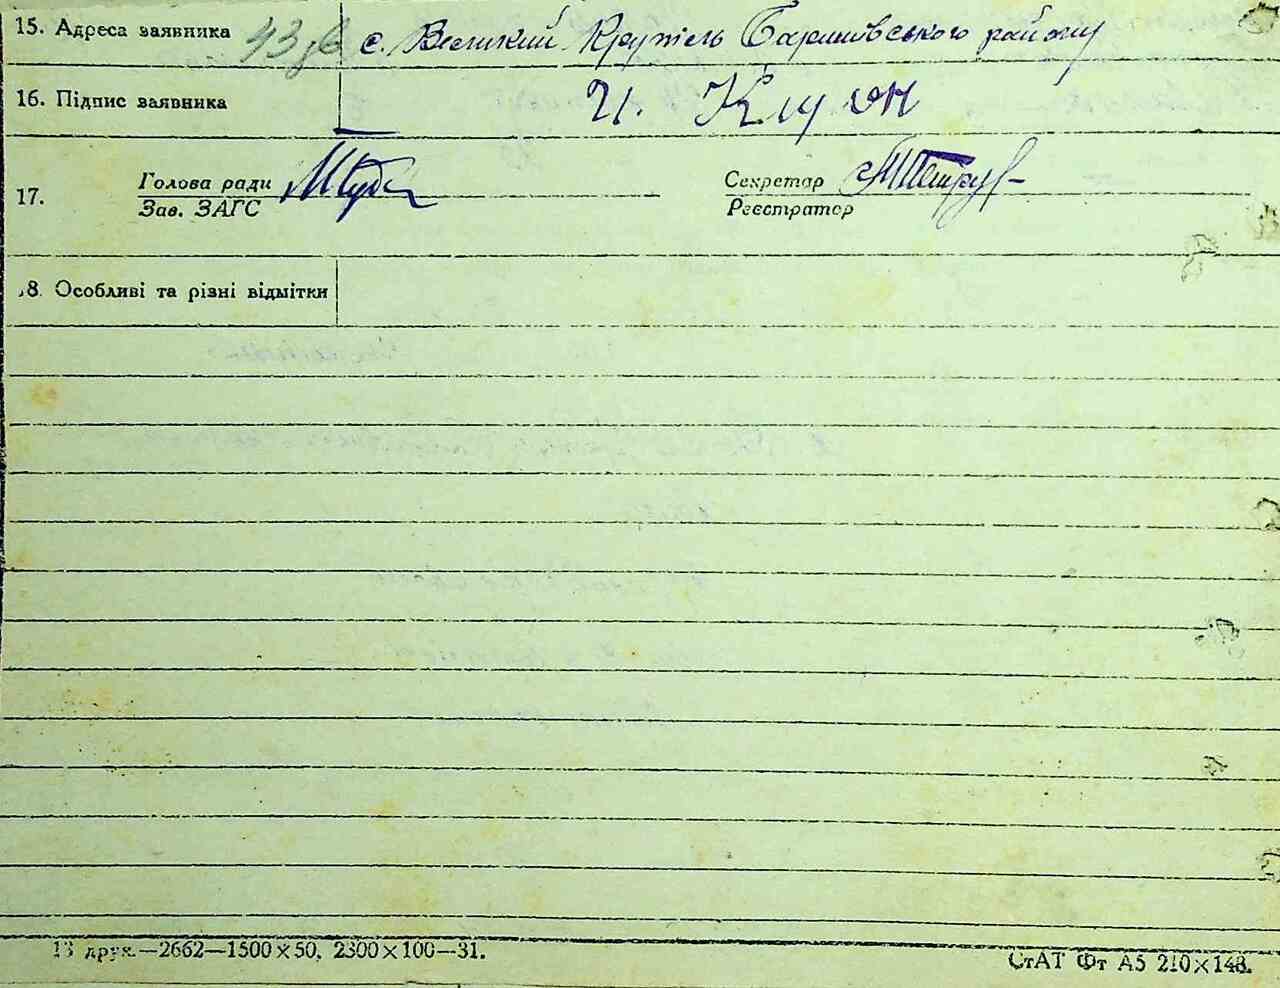 15. Адреса заявника 43 зв с. Великий Крупіль Баришівського району
16. Підпис заявника И.
17. Голова ради Секретар
Зав. ЗАГС Реєстратор
8. Особливі та різні відмітки
13 друк.—2662—1500×50, 2300×100—31. СтАТ Фт А5 210×148.